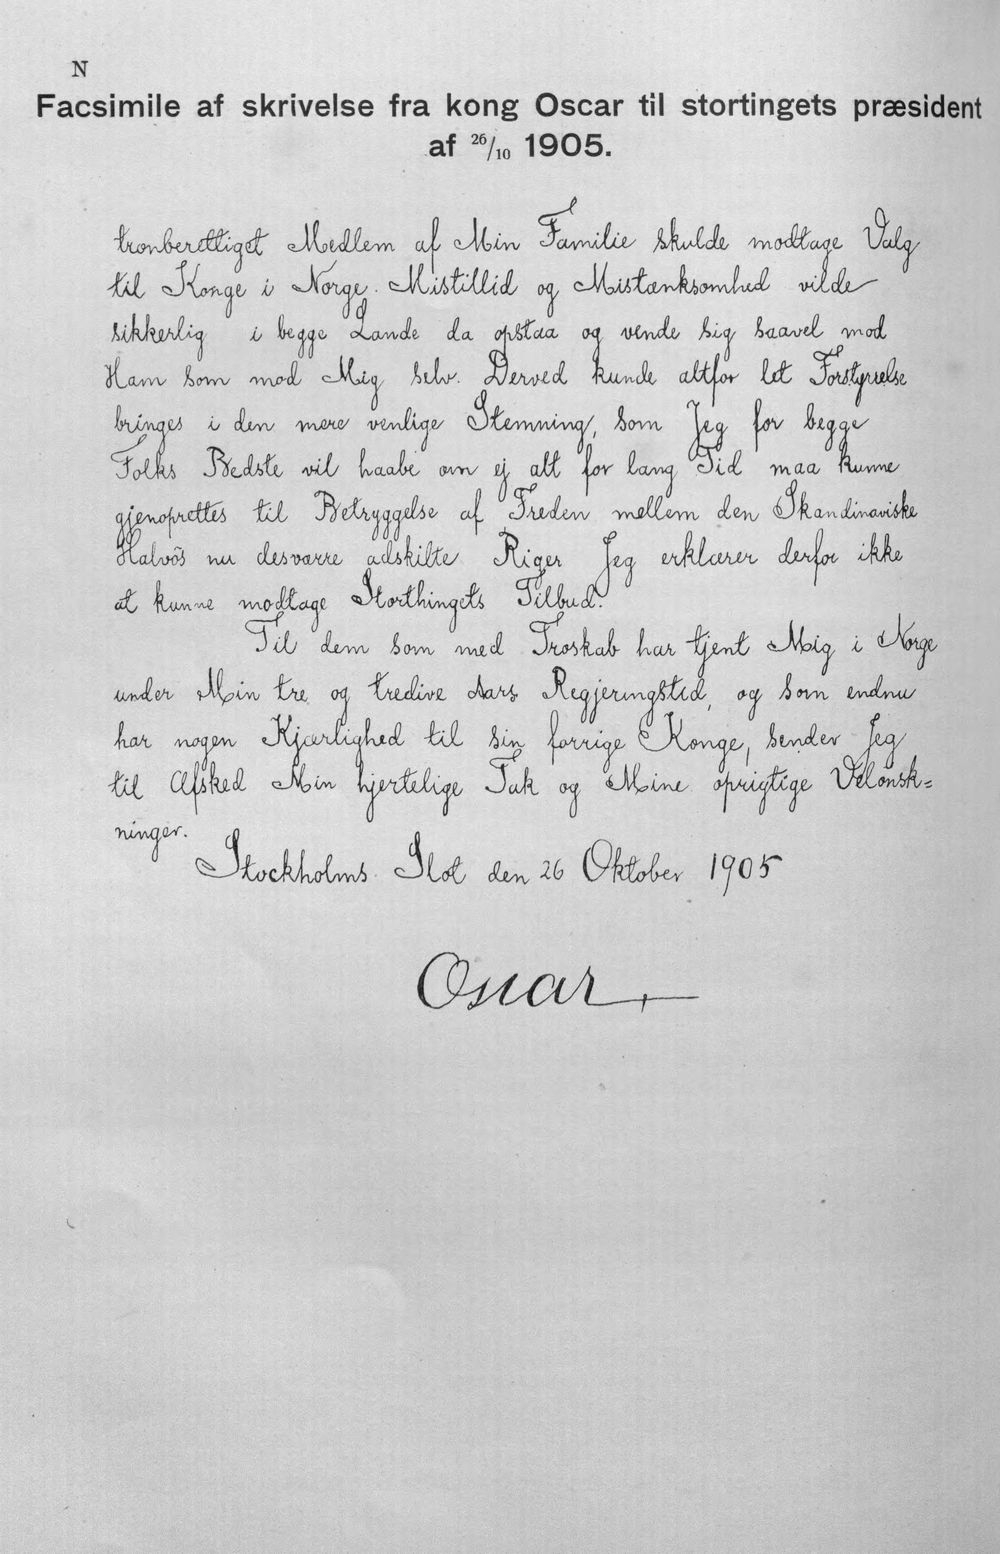 N
Facsimile af skrivelse fra kong Oscar til stortingets præsident
af 26/10 1905.
tronberettiget Medlem af Min Familie skulde modtage Valg
til Konge i Norge. Mistillid og Mistænksomhed vilde
sikkerlig i begge Lande da opstaa og vende sig saavel mod
Ham som mod Mig selv. Derved kunde altfor let Forstyrrelse
bringes i den mere venlige Stemning, som Jeg for begge
Folks Bedste vil haabe om ej alt for lang Tid maa kunne
gjenoprettes til Betryggelse af Freden mellem den Skandinaviske
Halvös nu desværre adskilte Riger Jeg erklærer derfor ikke
at kunne modtage Storthingets Tilbud.
Til dem som med Troskab har tjent Mig i Norge
under Min tre og tredive Aars Regjeringstid, og som endnu
har nogen Kjærlighed til sin forrige Konge, sender Jeg
til Afsked Min hjertelige Tak og Mine oprigtige Velönsk=
ninger.
Stockholms Slot den 26 Oktober 1905
Oscar